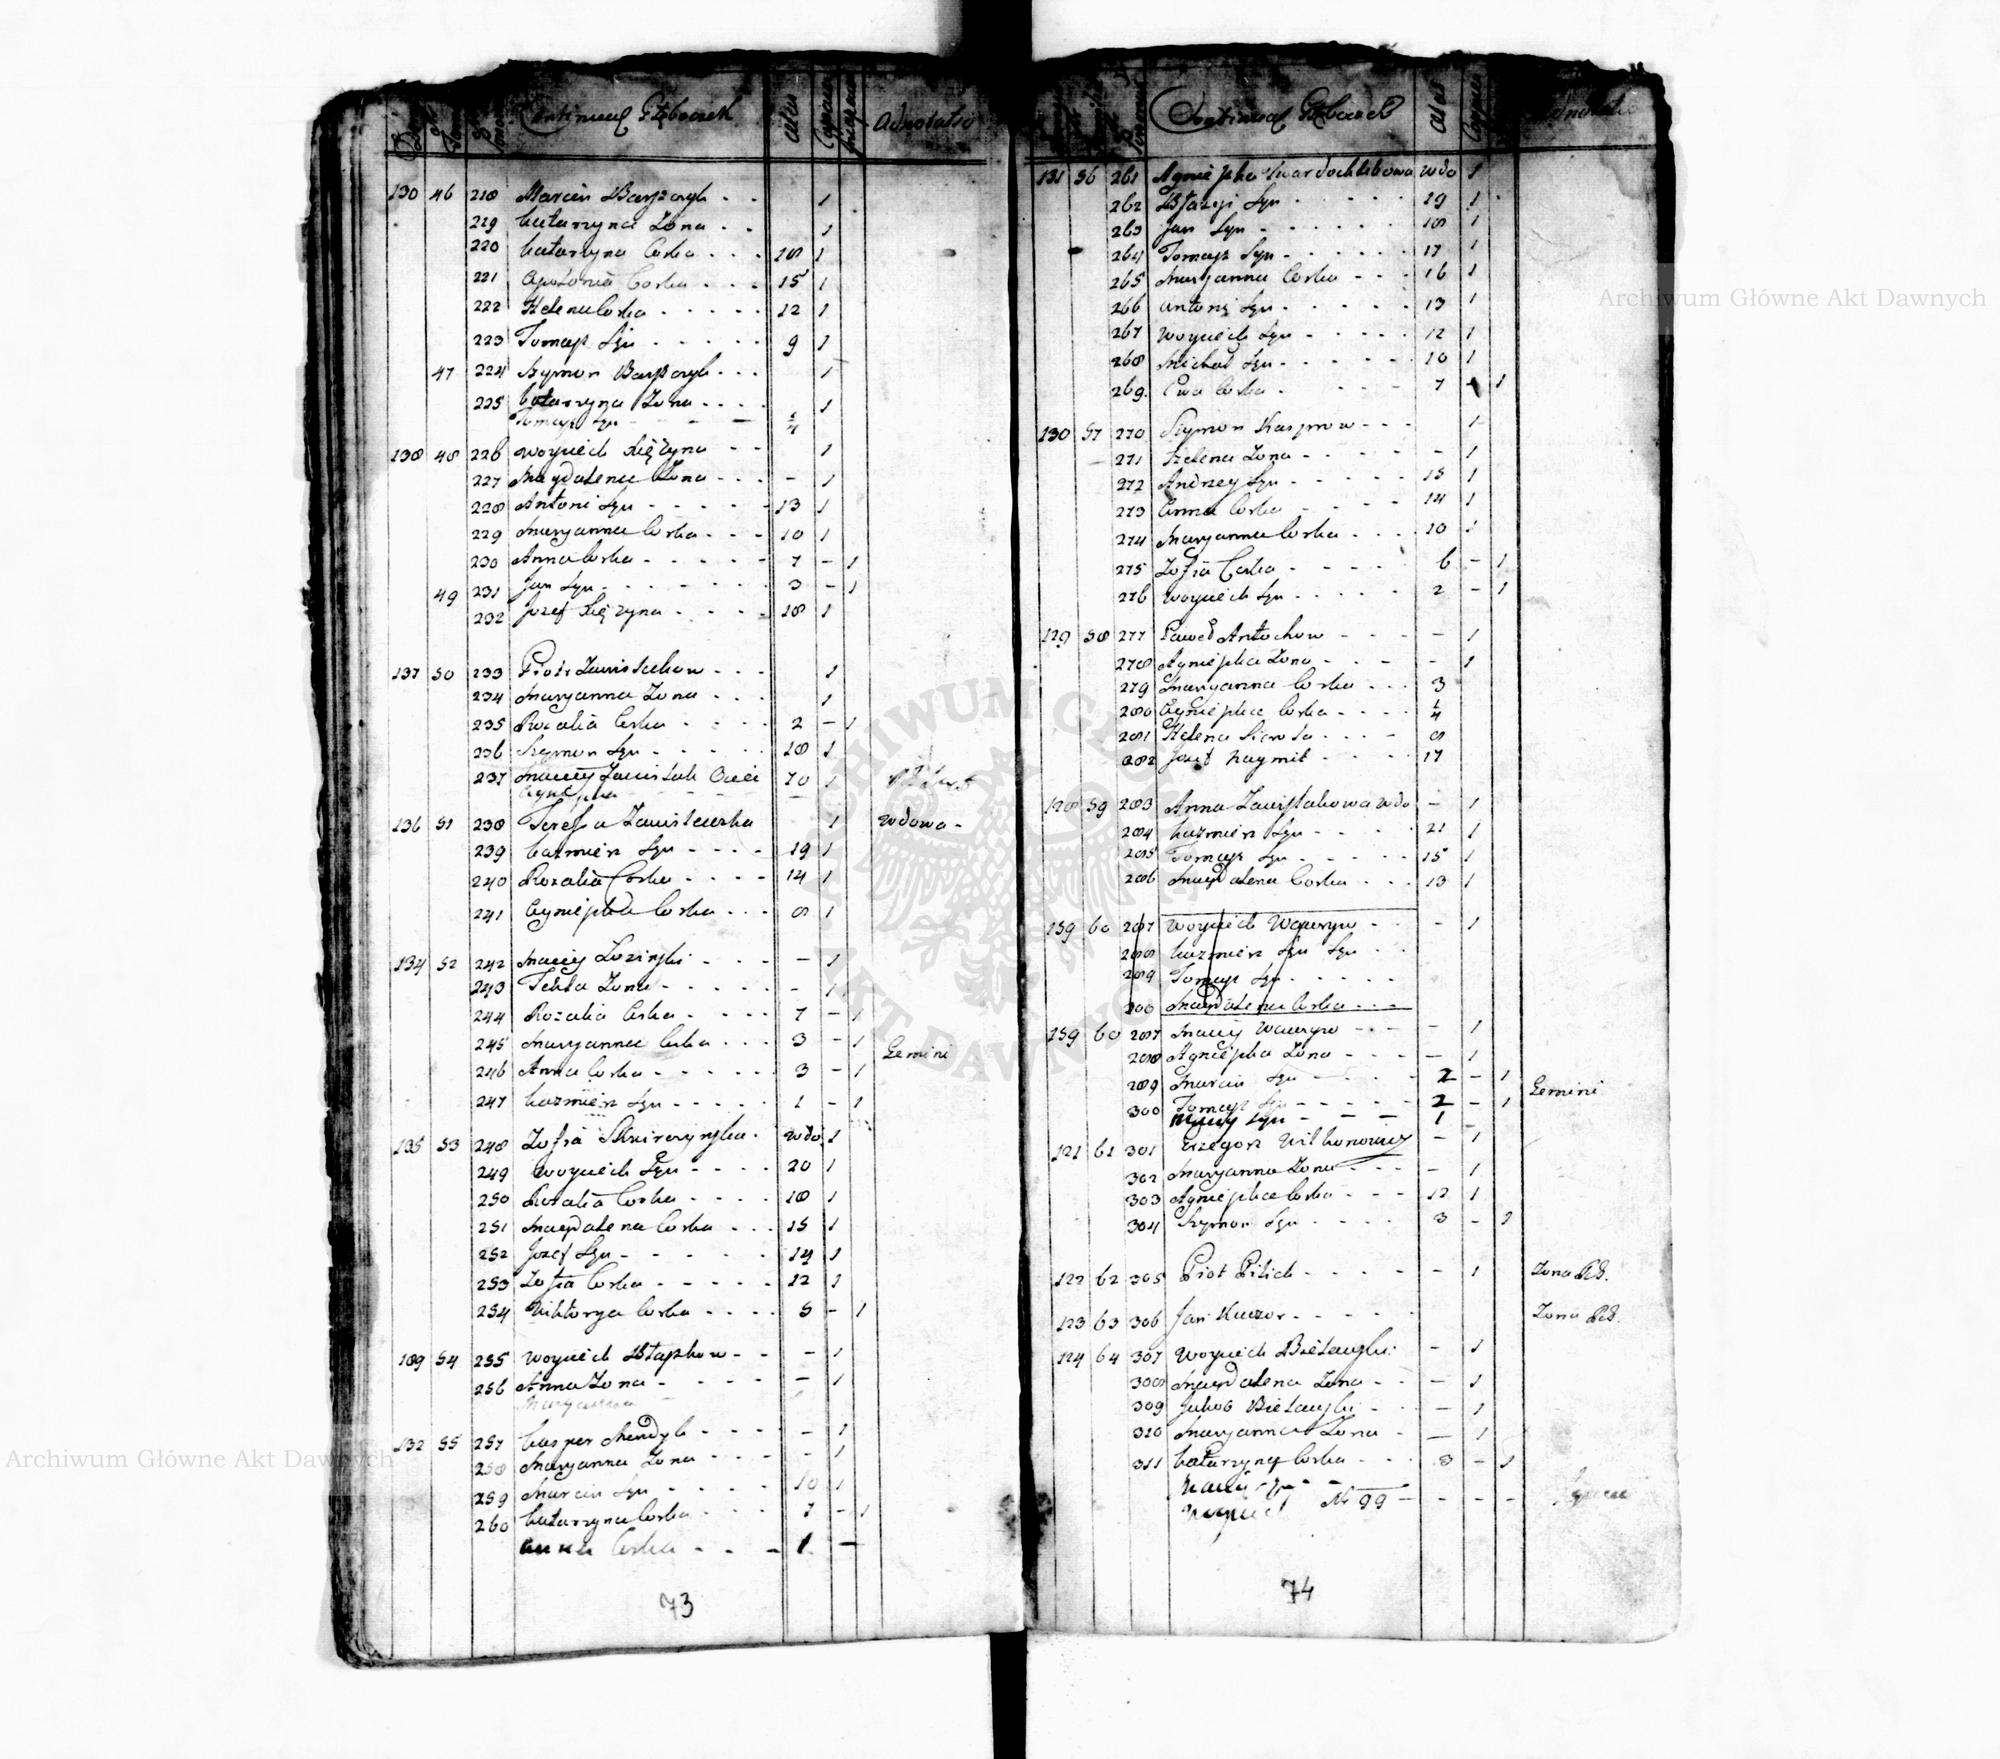 Continuat Głęboczek
Aetas
Capaces
Adnotatio
130 46 218 Marcin Barszczyk - - 1
219 Katarzyna Zona - - 1
220 Katarzyna Corka - - - 18 1
221 Apolonia Corka - - - 15 1
222 Helena Corka - - - - - 12 1
223 Tomasz Syn - - - - - 9 1
47 224 Szymon Barszczyk - - - 1
225 Katarzyna Zona - - - - 1
Tomasz Syn - - - 1/4
138 48 226 Woyciech Księżyna - - 1
227 Magdalena Zona - - - - 1
228 Antoni Syn - - - - - 13 1
229 Maryanna Corka - - - 10 1
230 Anna Corka - - - - - 7 - 1
231 Jan Syn - - - - - - 3 - 1
49 232 Jozef Księżyna - - - - 18 1
137 50 233 Piotr Zawislakow - - - 1
234 Maryanna Zona - - - 1
235 Rozalia Corka - - - - 2 - 1
236 Szymon Syn - - - - - 18 1
237 Maciey Zawislak Ociec 70 1
Agnieszka
136 51 238 Teressa Zawislacka 1 wdowa -
239 Kazmierz Syn - - - - 19 1
240 Rozalia Corka - - - - 14 1
241 Agnieszka Corka - - - 8 1
134 52 242 Maciey Lozinski - - - - - 1
243 Tekla Zona - - - - - - 1
244 Rozalia Corka - - - - 7 - 1
245 Maryanna Corka - - - 3 - 1 Gemini
246 Anna Corka - - - - - - 3 - 1
247 Kazmierz Syn - - - - - 1 - 1
135 53 248 Zofia Skwirczynska - wdo 1
249 Woyciech Syn - - - - 20 1
250 Rozalia Corka - - - - 18 1
251 Magdalena Corka - - - 15 1
252 Jozef Syn - - - - - 14 1
253 Zofia Corka - - - - - 12 1
254 Wiktorya Corka - - - - 5 - 1
189 54 255 Woyciech Staszkow - - - 1
256 Anna Zona - - - - - 1
Maryanna
132 55 257 Kasper Mendyk - - - - - 1
258 Maryanna Zona - - - - 1
259 Marcin Syn - - - - - 10 1
260 Katarzyna Corka - - - 7 - 1
Anna Corka - - - - 1 -
73
Continuat Głęboczek
Aetas
Capaces
Adnotatio
131 56 261 Agnieszka Twardochlebowa wdo 1
262 Błażej Syn - - - - - 19 1
263 Jan Syn - - - - - - 18 1
264 Tomasz Syn - - - - - - 17 1
265 Maryanna Corka - - - 16 1
266 Antoni Syn - - - - - 13 1
267 Woyciech Syn - - - - - 12 1
268 Michał Syn - - - - - - 10 1
269 Ewa Corka - - - - - 7 - 1
130 57 270 Szymon Kasprow - - - 1
271 Helena Zona - - - - - - 1
272 Andrzey Syn - - - - - 15 1
273 Anna Corka - - - - 14 1
274 Maryanna Corka - - - - 10 1
275 Zofia Corka - - - - - 6 - 1
276 Woyciech Syn - - - - - 2 - 1
129 58 277 Paweł Antochow - - - - 1
278 Agnieszka Zona - - - - 1
279 Maryanna Corka - - - 3
280 Agnieszka Corka - - - - 1/4
281 Helena Sierota - - - - 8
282 Jozef Naymit - - - - 17
128 59 283 Anna Zawislakowa wdo - 1
284 Kazmierz Syn - - - - 21 1
285 Tomasz Syn - - - - - 15 1
286 Magdalena Corka - - - 13 1
159 60 287 Woyciech Wawryn - - - 1
288 Kazmierz Syn Syn - -
289 Tomasz Syn - - - - -
300 Magdalena Corka - - -
159 60 287 Maciey Wawryn - - - - 1
288 Agnieszka Zona - - - - 1
289 Marcin Syn - - - - 2 - 1 Gemini
300 Tomasz Syn - - - - - 2 - 1
Maciey Syn - - - - 1
121 61 301 Grzegorz Witkonowicz - 1
302 Maryanna Zona - - - - 1
303 Agnieszka Corka - - - 12 1
304 Szymon Syn - - - - 3 - 1
122 62 305 Piotr Pilich - - - - - 1 Zona Rd.
123 63 306 Jan Kaczor - - - - - Zona Rd.
124 64 307 Woyciech Bielawski - - 1
308 Magdalena Zona - - - 1
309 Jakob Bielawski - - 1
310 Maryanna Zona - - 1
311 Katarzyna Corka - - - 3 - 1
Maciey Syn - -
Woyciech № 99 - - - -
74
Archiwum Główne Akt Dawnych
Archiwum Główne Akt Dawnych
ARCHIWUM GŁÓWNE AKT DAWNYCH